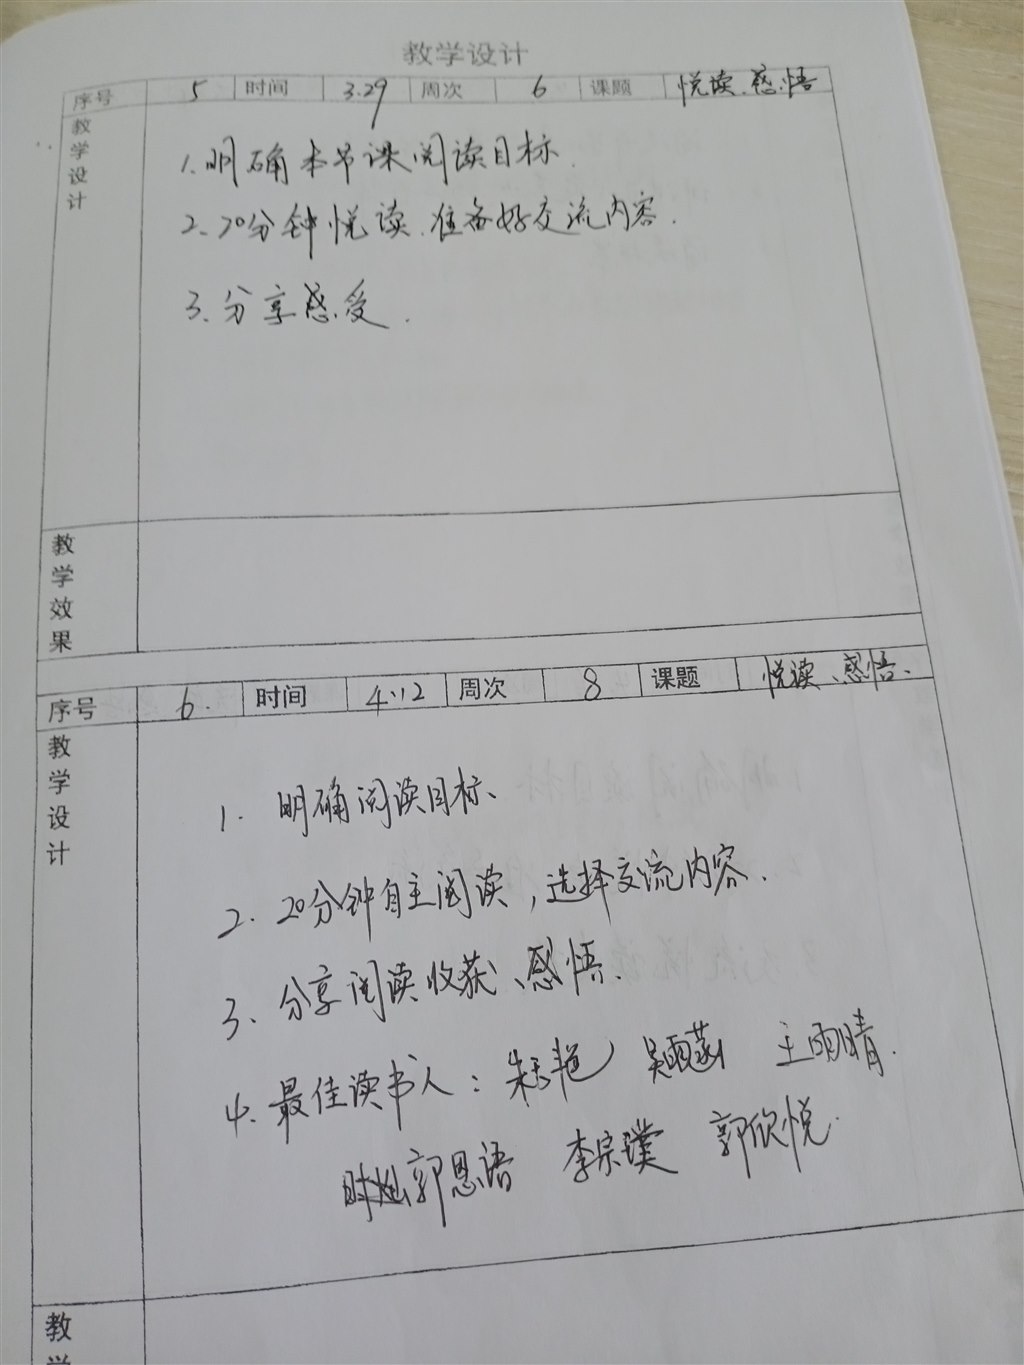 教学设计
序号 5 时间 3.29 周次 6 课题 悦读、感悟
教学设计
1.明确本节课阅读目标.
2、20分钟悦读.准备好交流内容.
3.分享感受.
教学效果
序号 6. 时间 4.12 周次 8 课题 悦读、感悟、
教学设计
1. 明确阅读目标、
2. 20分钟自主阅读,选择交流内容.
3、分享阅读收获、感悟.
4.最佳读书人: 吴雨菡 王雨晴.
郭恩语 李宗璞 郭欣悦.
教
学